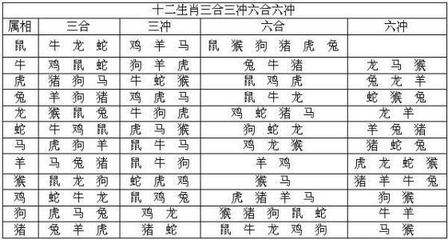 十二生肖三合三冲六合六冲
属相 三合 三冲 六合 六冲
鼠 牛 龙 蛇 鸡 羊 马 鼠 猴 狗 猪 虎 兔
牛 鸡 鼠 蛇 狗 羊 虎 兔 牛 猪 龙 马 猴
虎 猪 狗 马 马 牛 蛇 鼠 鸡 虎 兔 龙 羊
兔 羊 狗 猪 鸡 虎 马 鼠 牛 龙 蛇 猴 兔
龙 猴 鼠 兔 牛 狗 虎 鸡 蛇 猪 马 龙 羊
蛇 牛 鸡 鼠 虎 马 猴 狗 蛇 龙 羊 兔 猪
马 虎 狗 羊 鼠 牛 马 马 龙 猴 猪 蛇 兔
羊 马 兔 猪 鼠 牛 狗 羊 鸡 虎 龙 蛇 猴
猴 鼠 龙 狗 蛇 虎 鸡 猴 马 猪 羊 牛 兔
鸡 蛇 牛 龙 鼠 鸡 兔 虎 猪 羊 马 狗 猴
狗 虎 马 兔 鸡 龙 猴 猪 狗 鼠 蛇 牛 羊
猪 兔 羊 虎 猪 蛇 鼠 牛 龙 鸡 狗 马 虎 猴